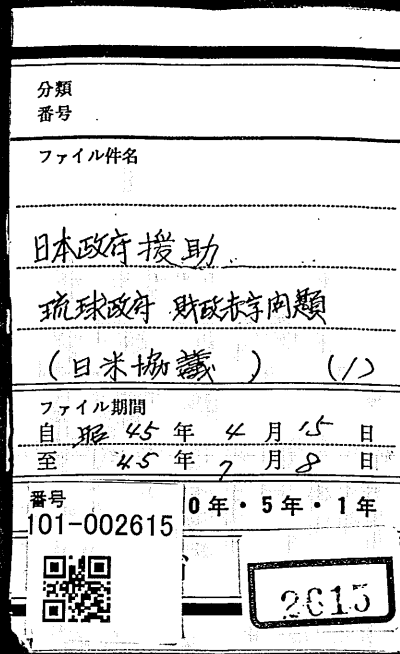 分類
番号
ファイル件名
日本政府援助
琉球政府 財政赤字問題
(日米協議) (1)
ファイル期間
自 昭45年4月15日
至 45年7月8日
番号
101-002615
0年・5年・1年
2615